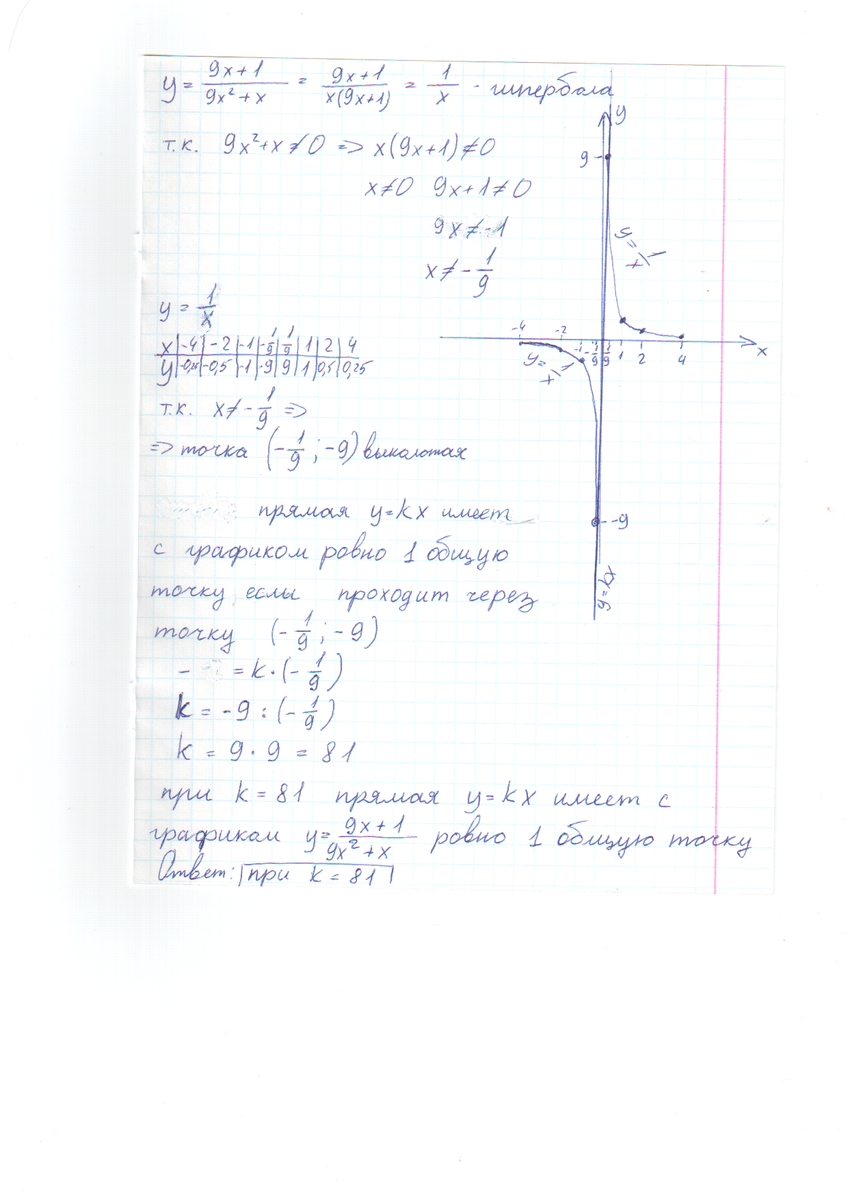 y = \frac{9x+1}{9x²+x} = \frac{9x+1}{x(9x+1)} = \frac{1}{x} - гипербола
т.к. 9x²+x≠0 => x(9x+1)≠0
x≠0 9x+1≠0
9x≠-1
x≠-\frac{1}{9}
y = \frac{1}{x}
x | -4 | -2 | -1 | -\frac{1}{9} | \frac{1}{9} | 1 | 2 | 4
y | -0,25 | -0,5 | -1 | -9 | 9 | 1 | 0,5 | 0,25
т.к. x≠-\frac{1}{9} =>
=> точка (-\frac{1}{9}; -9) выколотая
прямая y=kx имеет
с графиком ровно 1 общую
точку, если проходит через
точку (-\frac{1}{9}; -9)
- = k·(-\frac{1}{9})
k = -9 : (-\frac{1}{9})
k = 9 · 9 = 81
при k = 81 прямая y=kx имеет с
графиком y=\frac{9x+1}{9x²+x} ровно 1 общую точку
Ответ: при k = 81
y
9
y=\frac{1}{x}
-4 -2 -1 -\frac{1}{9} \frac{1}{9} 1 2 4
x
y=\frac{1}{x}
-9
y=kx